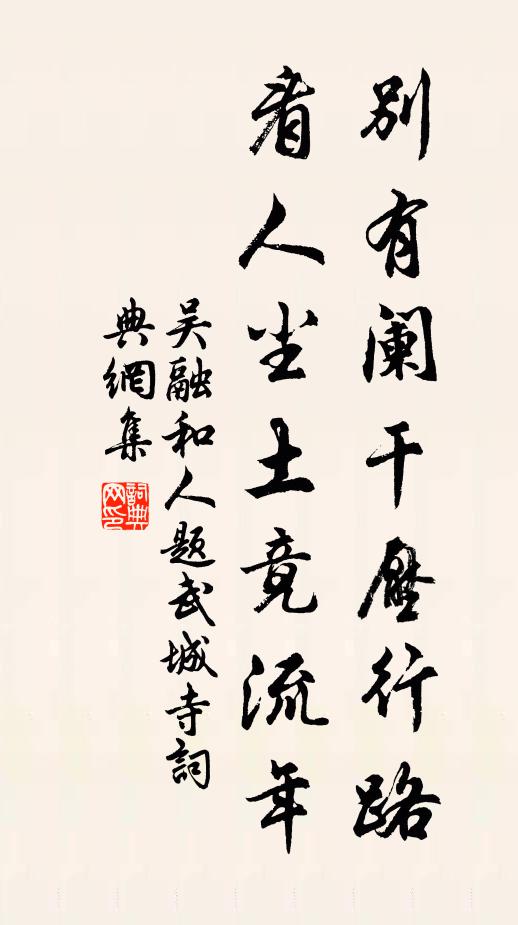 别有阑干壓行路
看人尘土竟流年
吴融和人题武城寺詞
典網集
詞典
网印